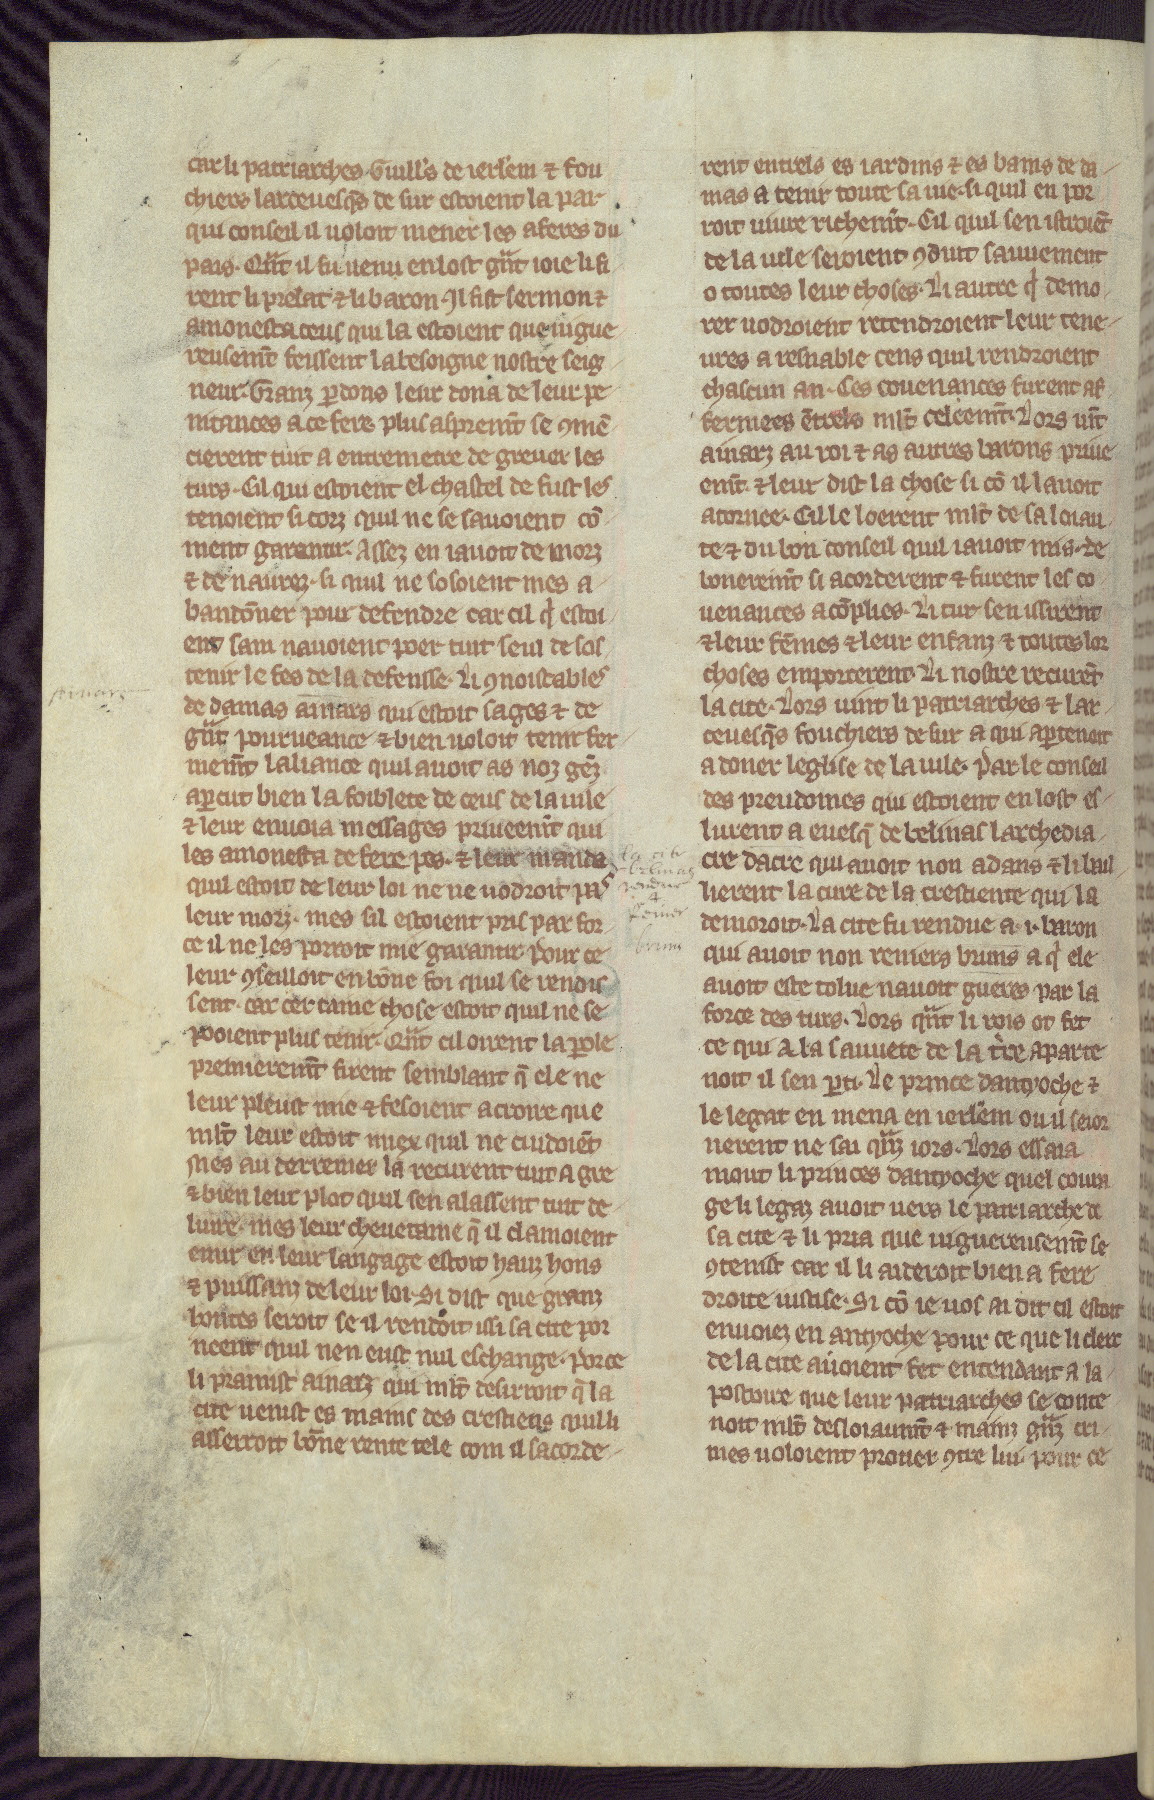 car li patriarches Guill's de ierl'em ⁊ fou
chiers larceuesq̄s de sur estoient la par
qui conseil il uoloit mener les aferes du
pais. Qn̄t il fu uenu en lost gn̄t ioie li fi
rent li prelat ⁊ li baron. Il fist sermon ⁊
amonesta ceus qui la estoient que uigue
reusemēt feissent la besoigne nostre seig
neur. Granz p̄dons leur dona de leur pe
nitances a ce fere. plus aspremēt se ꝯmē
cierent tuit a entremetre de greuer les
turs. Cil qui estoient el chastel de fust les
tenoient si corz quil ne se sauoient cō
ment garentir. Assez en iauoit de morz
⁊ de naurez. si quil ne sosoient mes a
bandōner pour defendre car cil q̇ estoi
ent sain nauoient poer tuit seul de sos
tenir le fes de la defensse. Li ꝯnoistables
de damas ainars qui estoit sages ⁊ de
gn̄t pourueance ⁊ bien uoloit tenir fer
memēt laliance quil auoit as noz gēz
ap̄cut bien la foiblete de ceus de la uile
⁊ leur enuoia messages priueemēt qui
les amonesta de fere pes. ⁊ leur manda
quil estoit de leur loi ne ne uodroit pas
leur morz. mes sil estoient pris par for
ce il ne les porroit mie garantir. Pour ce
leur ꝯseilloit en bōne foi quil se rendis
sent. car certaine chose estoit quil ne se
pooient plus tenir. Qn̄t cil oirent la p̄ole
premieremēt firent semblant q̄ ele ne
leur pleust mie ⁊ fesoient acroire que
ml̄t leur estoit miex quil ne cuidoiēt
mes au derrenier la recurent tuit a gre
⁊ bien leur plot quil sen alassent tuit de
liure. mes leur cheuetaine q̄ il clamoient
emir en leur langage estoit hauz hons
⁊ puissanz de leur loi. Si dist que granz
hontes seroit se il rendoit issi sa cite por
neent quil nen eust nul eschange. Por ce
li pramist ainarz qui ml̄t desirroit q̄ la
cite uenist es mains des crestiens quil li
asserroit bōne rente tele com il sacorde
ainars
la cite
belinas
rendue
a
renier
bruns
rent entrels es iardins ⁊ es bains de da
mas a tenir toute sa uie. si quil en por
roit uiure richemēt. Cil quil sen istroiēt
de la uile seroient ꝯduit sauuement
o toutes leur choses. Li autre q̇ demo
rer uodroient retendroient leur tene
ures a resnable cens quil rendroient
chascun an. Ces couenances furent af
fermees ētrels ml̄t celeemēt. Lors uīt
ainarz au roi ⁊ as autres barons priue
emēt. ⁊ leur dist la chose si cō il lauoit
atornee. Cil le loerent ml̄t de sa loiau
te ⁊ du bon conseil quil iauoit mis. de
boneremēt si acorderent ⁊ furent les co
uenances acōplies. Li tur sen issirent
⁊ leur fēmes ⁊ leur enfanz ⁊ toutes lor
choses emporterent. Li nostre recurēt
la cite. Lors uint li patriarches ⁊ lar
ceuesq̄s fouchiers de sur a qui ap̄tenoit
a doner leglise de la uile. Par le conseil
des preudomes qui estoient en lost es
lurent a euesq̄ de belinas larchedia
cre dacre qui auoit non adans ⁊ li bail
lierent la cure de la crestiente qui la
demoroit. La cite fu rendue a .i. baron
qui auoit non reniers bruns a q̇ ele
auoit este tolue nauoit gueres par la
force des turs. Lors qn̄t li rois ot fet
ce qui a la sauuete de la t̄re aparte
noit il sen p̄ti. Le prince dantyoche ⁊
le legat en mena en ierl'em ou il seior
nerent ne sai qn̄z iors. Lors essaia
mout li princes dantyoche quel coura
ge li legaz auoit uers le patriarche de
sa cite ⁊ li pria que uiguereusemēt se
ꝯtenist car il li aideroit bien a fere
droite iustise. Si cō ie uos ai dit cil estoit
enuoiez en antyoche pour ce que li clerc
de la cite auoient fet entendant a la
postoire que leur patriarches se conte
noit ml̄t desloiaumēt ⁊ mainz gn̄z cri
mes uoloient prouer ꝯtre lui. pour ce